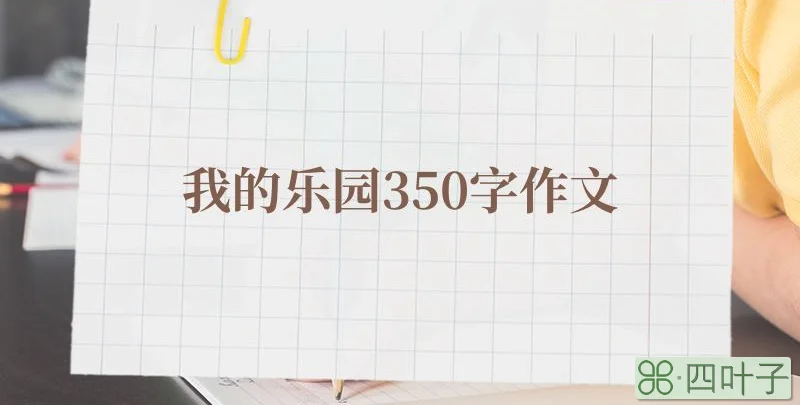 我的乐园350字作文
四叶子